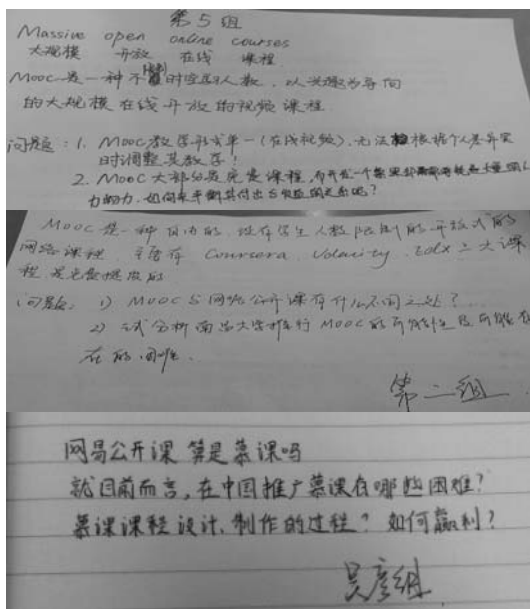 第5组
Massive open online courses
大规模 开放 在线 课程
MOOC是一种不限时空与人数，以兴趣为导向
的大规模在线开放的视频课程
问题：1. MOOC教学形式单一(在线视频)，无法根据个人差异实
时调整其教学！
2. MOOC大部分是免费课程，而开发一个
力物力，如何来平衡其付出与效益的关系呢？
MOOC是一种 的，没有学生人数限制的开放式的
网络课程，主要有 Coursera、Udacity、Edx三大课
程是免费提供的
问题：1) MOOC与网络公开课有什么不同之处？
2) 试分析 大学推行MOOC的可能性及可能存
在的困难.
第二组
网易公开课算是慕课吗
就目前而言，在中国推广慕课有哪些困难？
慕课课程设计、制作的过程？如何赢利？
吴彦组